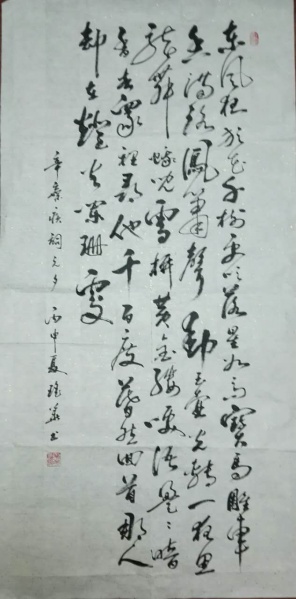 東風夜放花千樹更吹落星如雨寶馬雕車
香滿路鳳簫聲動玉壺光轉一夜魚
龍舞蛾兒雪柳黃金縷笑語盈〻暗
香去眾裡尋他千百度驀然回首那人
却在燈火闌珊處
辛棄疾詞元夕 丙申夏書